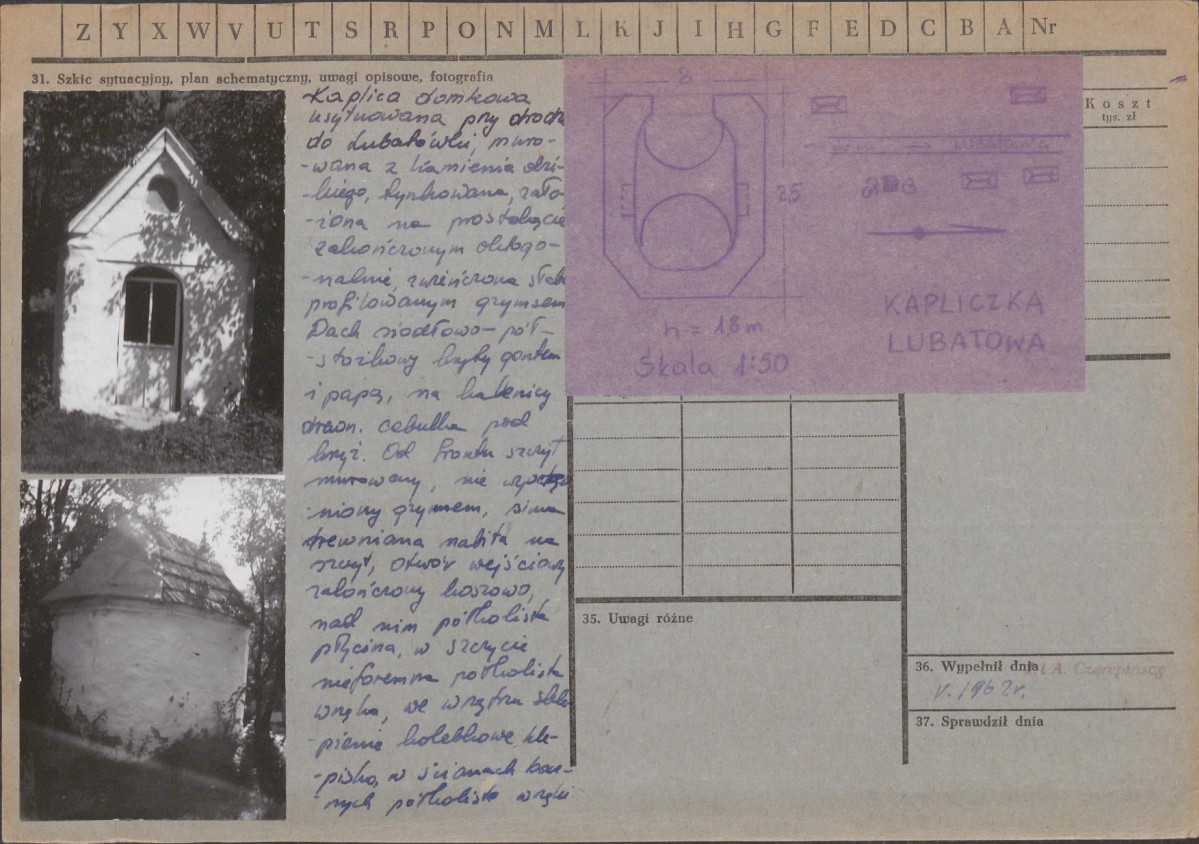 Z Y X W V U T S R P O N M L K J I H G F E D C B A Nr
31. Szkic sytuacyjny, plan schematyczny, uwagi opisowe, fotografia
Kaplica domkowa
usytuowana przy drodze
do Lubatówki, muro-
-wana z kamienia dzi-
-kiego, tynkowana, zało-
-żona na prostokącie
zakończonym oktogo-
-nalnie, zwieńczona słabo
profilowanym gzymsem
Dach siodłowo-pół-
-stożkowy kryty gontem
i papą, na kalenicy
drewn. cebulka pod
krzyż. Od frontu szczyt
murowany, nie
-niony gzymsem, sima
drewniana nabita na
szczyt, otwór wejściowy
zakończony koszowo,
nad nim półkolista
płycina, w szczycie
nieforemna półkolista
wnęka, we wnętrzu skle-
-pienie kolebkowe, kle-
-pisko, w ścianach bocz-
-nych półkoliste wnęki
2
2,5
h = 1,8 m
Skala 1:50
LUBATOWA
KAPLICZKA
LUBATOWA
Koszt
tys. zł
35. Uwagi różne
36. Wypełnił dnia
A. Czarepińscy
V. 1962 r.
37. Sprawdził dnia